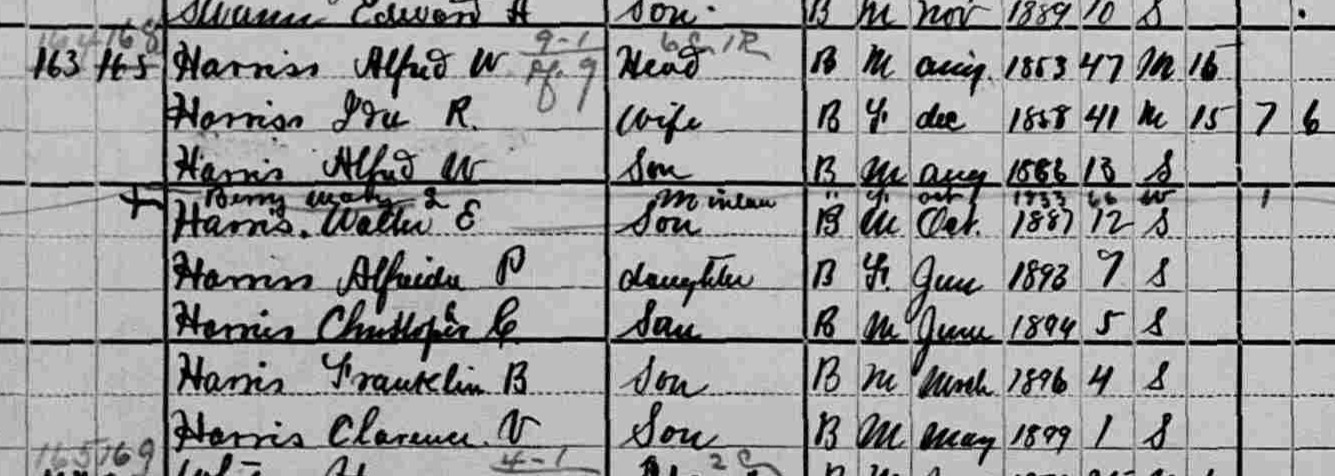 Swann Edward A Son B M Nov 1889 10 S
164 168 9-1 6 R
163 165 Harriss Alfred W Head B M aug. 1853 47 M 15
Harriss Ida R. Wife B F. dec 1858 41 M 15 7 6
Harris Alfred W Son B M aug 1886 13 S
Berry Mary L M inlaw " F. oct 1833 66 W 1
Harris. Walter E Son B M Oct. 1887 12 S
Harriss Alfreida P daughter B F. June 1893 7 S
Harris Christopher C Son B M June 1894 5 S
Harris Franklin B Son B M March 1896 4 S
Harris Clarence. V Son B M May 1899 1 S
165 169 4-1 2